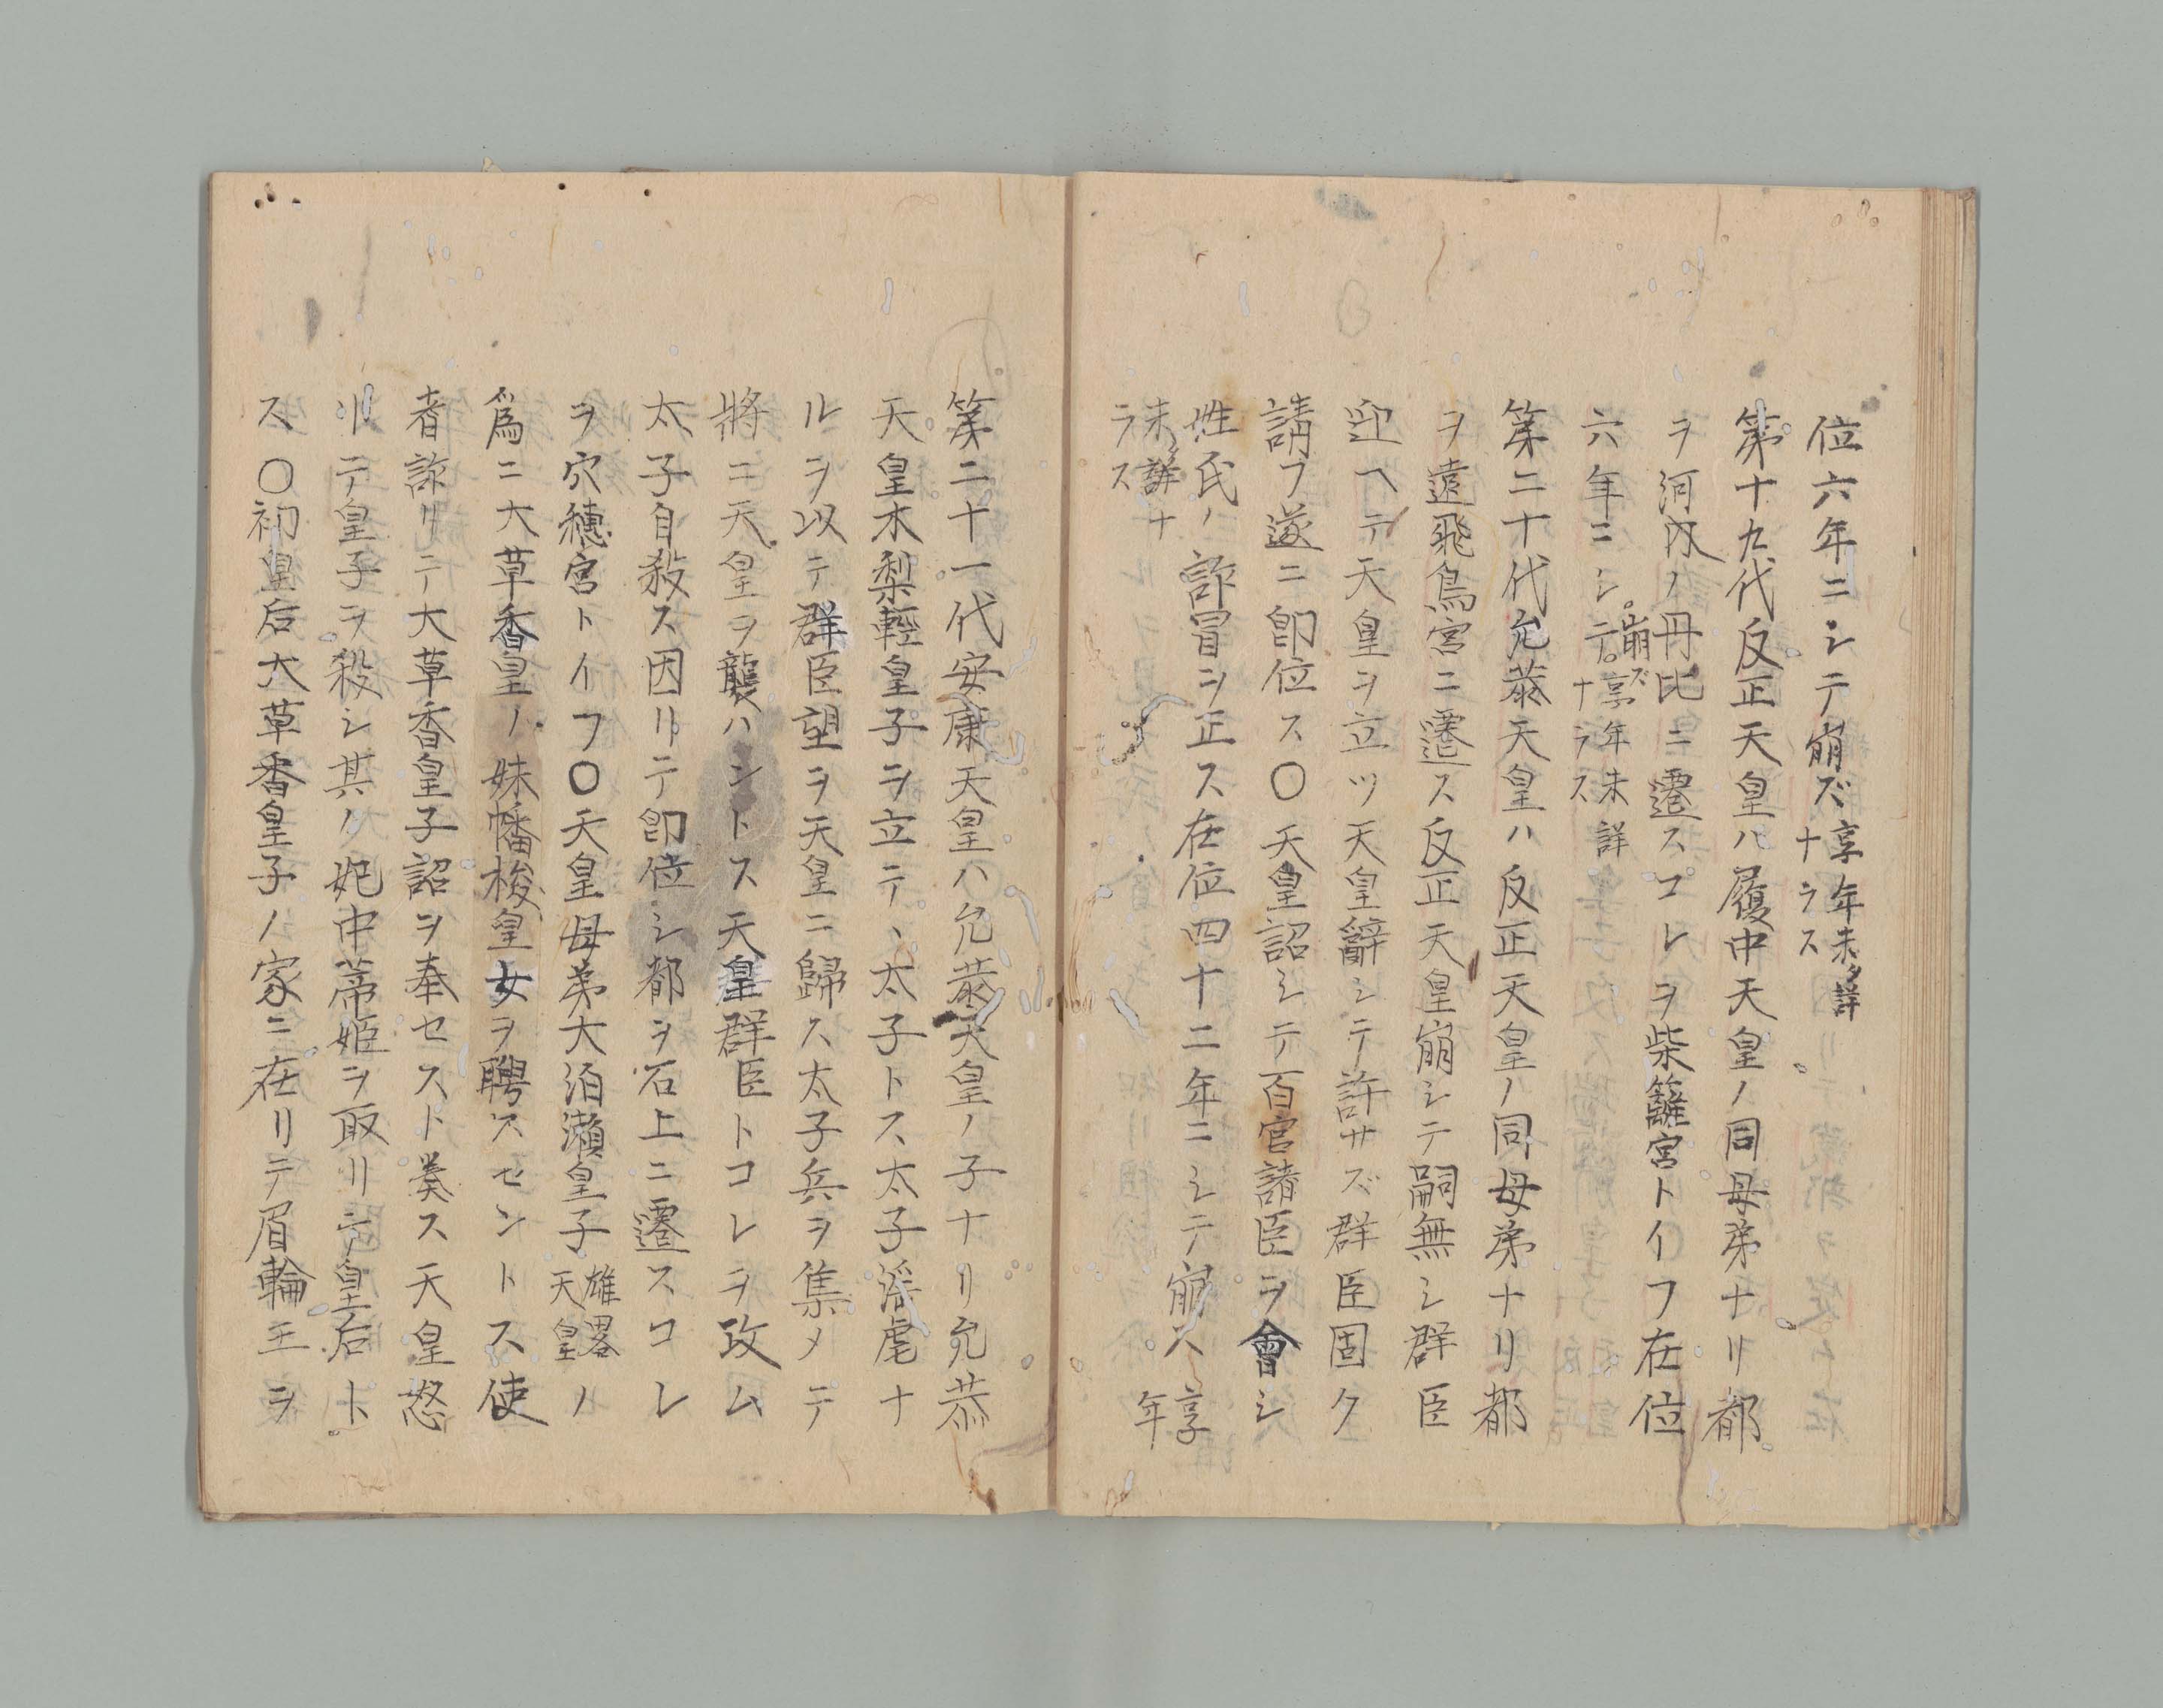 位六年ニシテ崩ズ享年未詳ナラス
第十九代反正天皇ハ履中天皇ノ同母弟ナリ都
ヲ河内ノ丹比ニ遷スコレヲ柴籬宮トイフ在位
六年ニシテ崩ズ享年未詳ナラス
第二十代允恭天皇ハ反正天皇ノ同母弟ナリ都
ヲ遠飛鳥宮ニ遷ス反正天皇崩シテ嗣無シ群臣
迎ヘテ天皇ヲ立ツ天皇辭シテ許サズ群臣固ク
請フ遂ニ即位ス〇天皇詔シテ百官諸臣ヲ會シ
姓氏ノ詐冒ヲ正ス在位四十二年ニシテ崩ス享年
未詳ナラス
第二十一代安康天皇ハ允恭天皇ノ子ナリ允恭
天皇木梨輕皇子ヲ立テヽ太子トス太子淫虐ナ
ルヲ以テ群臣望ヲ天皇ニ歸ス太子兵ヲ集メテ
將ニ天皇ヲ襲ハントス天皇群臣トコレヲ攻ム
太子自殺ス因リテ即位シ都ヲ石上ニ遷スコレ
ヲ穴穗宮トイフ〇天皇母弟大泊瀬皇子雄畧天皇ノ
爲ニ大草香皇ノ妹幡梭皇女ヲ聘スセントス使
者詐リテ大草香皇子詔ヲ奉セスト奏ス天皇怒
リテ皇子ヲ殺シ其ノ妃中蒂姫ヲ取リテ皇后ト
ス〇初皇后大草香皇子ノ家ニ在リテ眉輪王ヲ